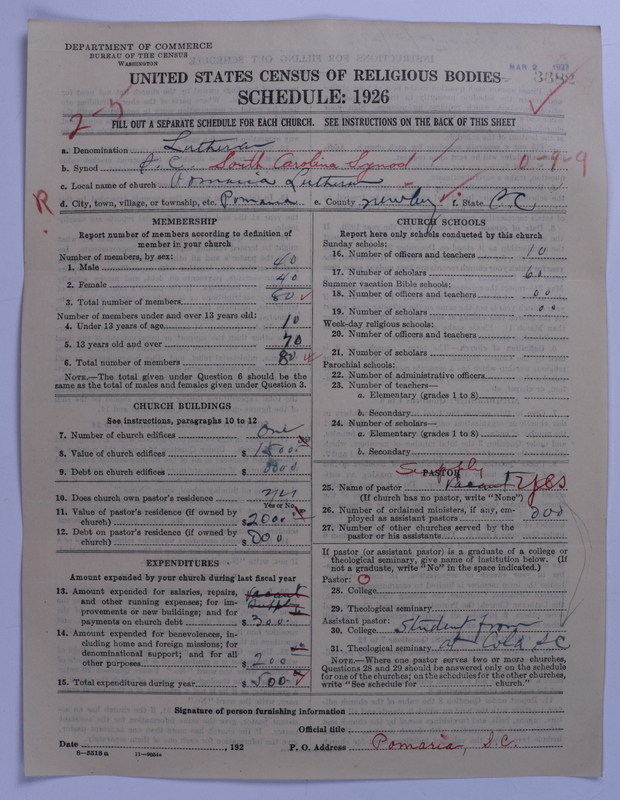 DEPARTMENT OF COMMERCE
BUREAU OF THE CENSUS
WASHINGTON
MAR 2 1927
3382
UNITED STATES CENSUS OF RELIGIOUS BODIES
SCHEDULE: 1926
2-7
FILL OUT A SEPARATE SCHEDULE FOR EACH CHURCH. SEE INSTRUCTIONS ON THE BACK OF THIS SHEET
a. Denomination Lutheran
b. Synod S.C. South Carolina Synod
0-9-9
c. Local name of church Pomaria Lutheran
R
d. City, town, village, or township, etc. Pomaria e. County Newbery f. State S.C.
MEMBERSHIP
Report number of members according to definition of member in your church
Number of members, by sex:
1. Male 40
2. Female 40
3. Total number of members 80
Number of members under and over 13 years old:
4. Under 13 years of age 10
5. 13 years old and over 70
6. Total number of members 80
NOTE.—The total given under Question 6 should be the
same as the total of males and females given under Question 3.
CHURCH BUILDINGS
See instructions, paragraphs 10 to 12
7. Number of church edifices One
8. Value of church edifices $ 1500.
9. Debt on church edifices $ 0000
10. Does church own pastor's residence yes
Yes or No
11. Value of pastor's residence (if owned by
church) $ 2000.
12. Debt on pastor's residence (if owned by
church) $ 000.
EXPENDITURES
Amount expended by your church during last fiscal year
13. Amount expended for salaries, repairs,
and other running expenses; for im-
provements or new buildings; and for
payments on church debt $ 300.
14. Amount expended for benevolences, in-
cluding home and foreign missions; for
denominational support; and for all
other purposes $ 200
15. Total expenditures during year $ 500.
CHURCH SCHOOLS
Report here only schools conducted by this church
Sunday schools:
16. Number of officers and teachers 10
17. Number of scholars 60
Summer vacation Bible schools:
18. Number of officers and teachers 00
19. Number of scholars 00
Week-day religious schools:
20. Number of officers and teachers
21. Number of scholars
Parochial schools:
22. Number of administrative officers
23. Number of teachers—
a. Elementary (grades 1 to 8)
b. Secondary
24. Number of scholars—
a. Elementary (grades 1 to 8)
b. Secondary
Supply
PASTOR
25. Name of pastor Vacant yes
(If church has no pastor, write "None")
26. Number of ordained ministers, if any, em-
ployed as assistant pastors 000
27. Number of other churches served by the
pastor or his assistants
If pastor (or assistant pastor) is a graduate of a college or
theological seminary, give name of institution below. (If
not a graduate, write "No" in the space indicated.)
Pastor: O
28. College
29. Theological seminary
Assistant pastor:
30. College Student from
31. Theological seminary at Cola SC
NOTE.—Where one pastor serves two or more churches,
Questions 28 and 29 should be answered only on the schedule
for one of the churches; on the schedules for the other churches,
write "See schedule for church."
Signature of person furnishing information
Official title
Date , 192 P. O. Address Pomaria, S.C.
8-5518 a